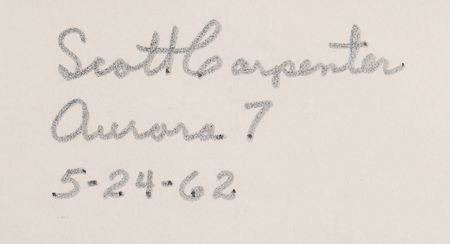 Scott Carpenter
Aurora 7
5-24-62